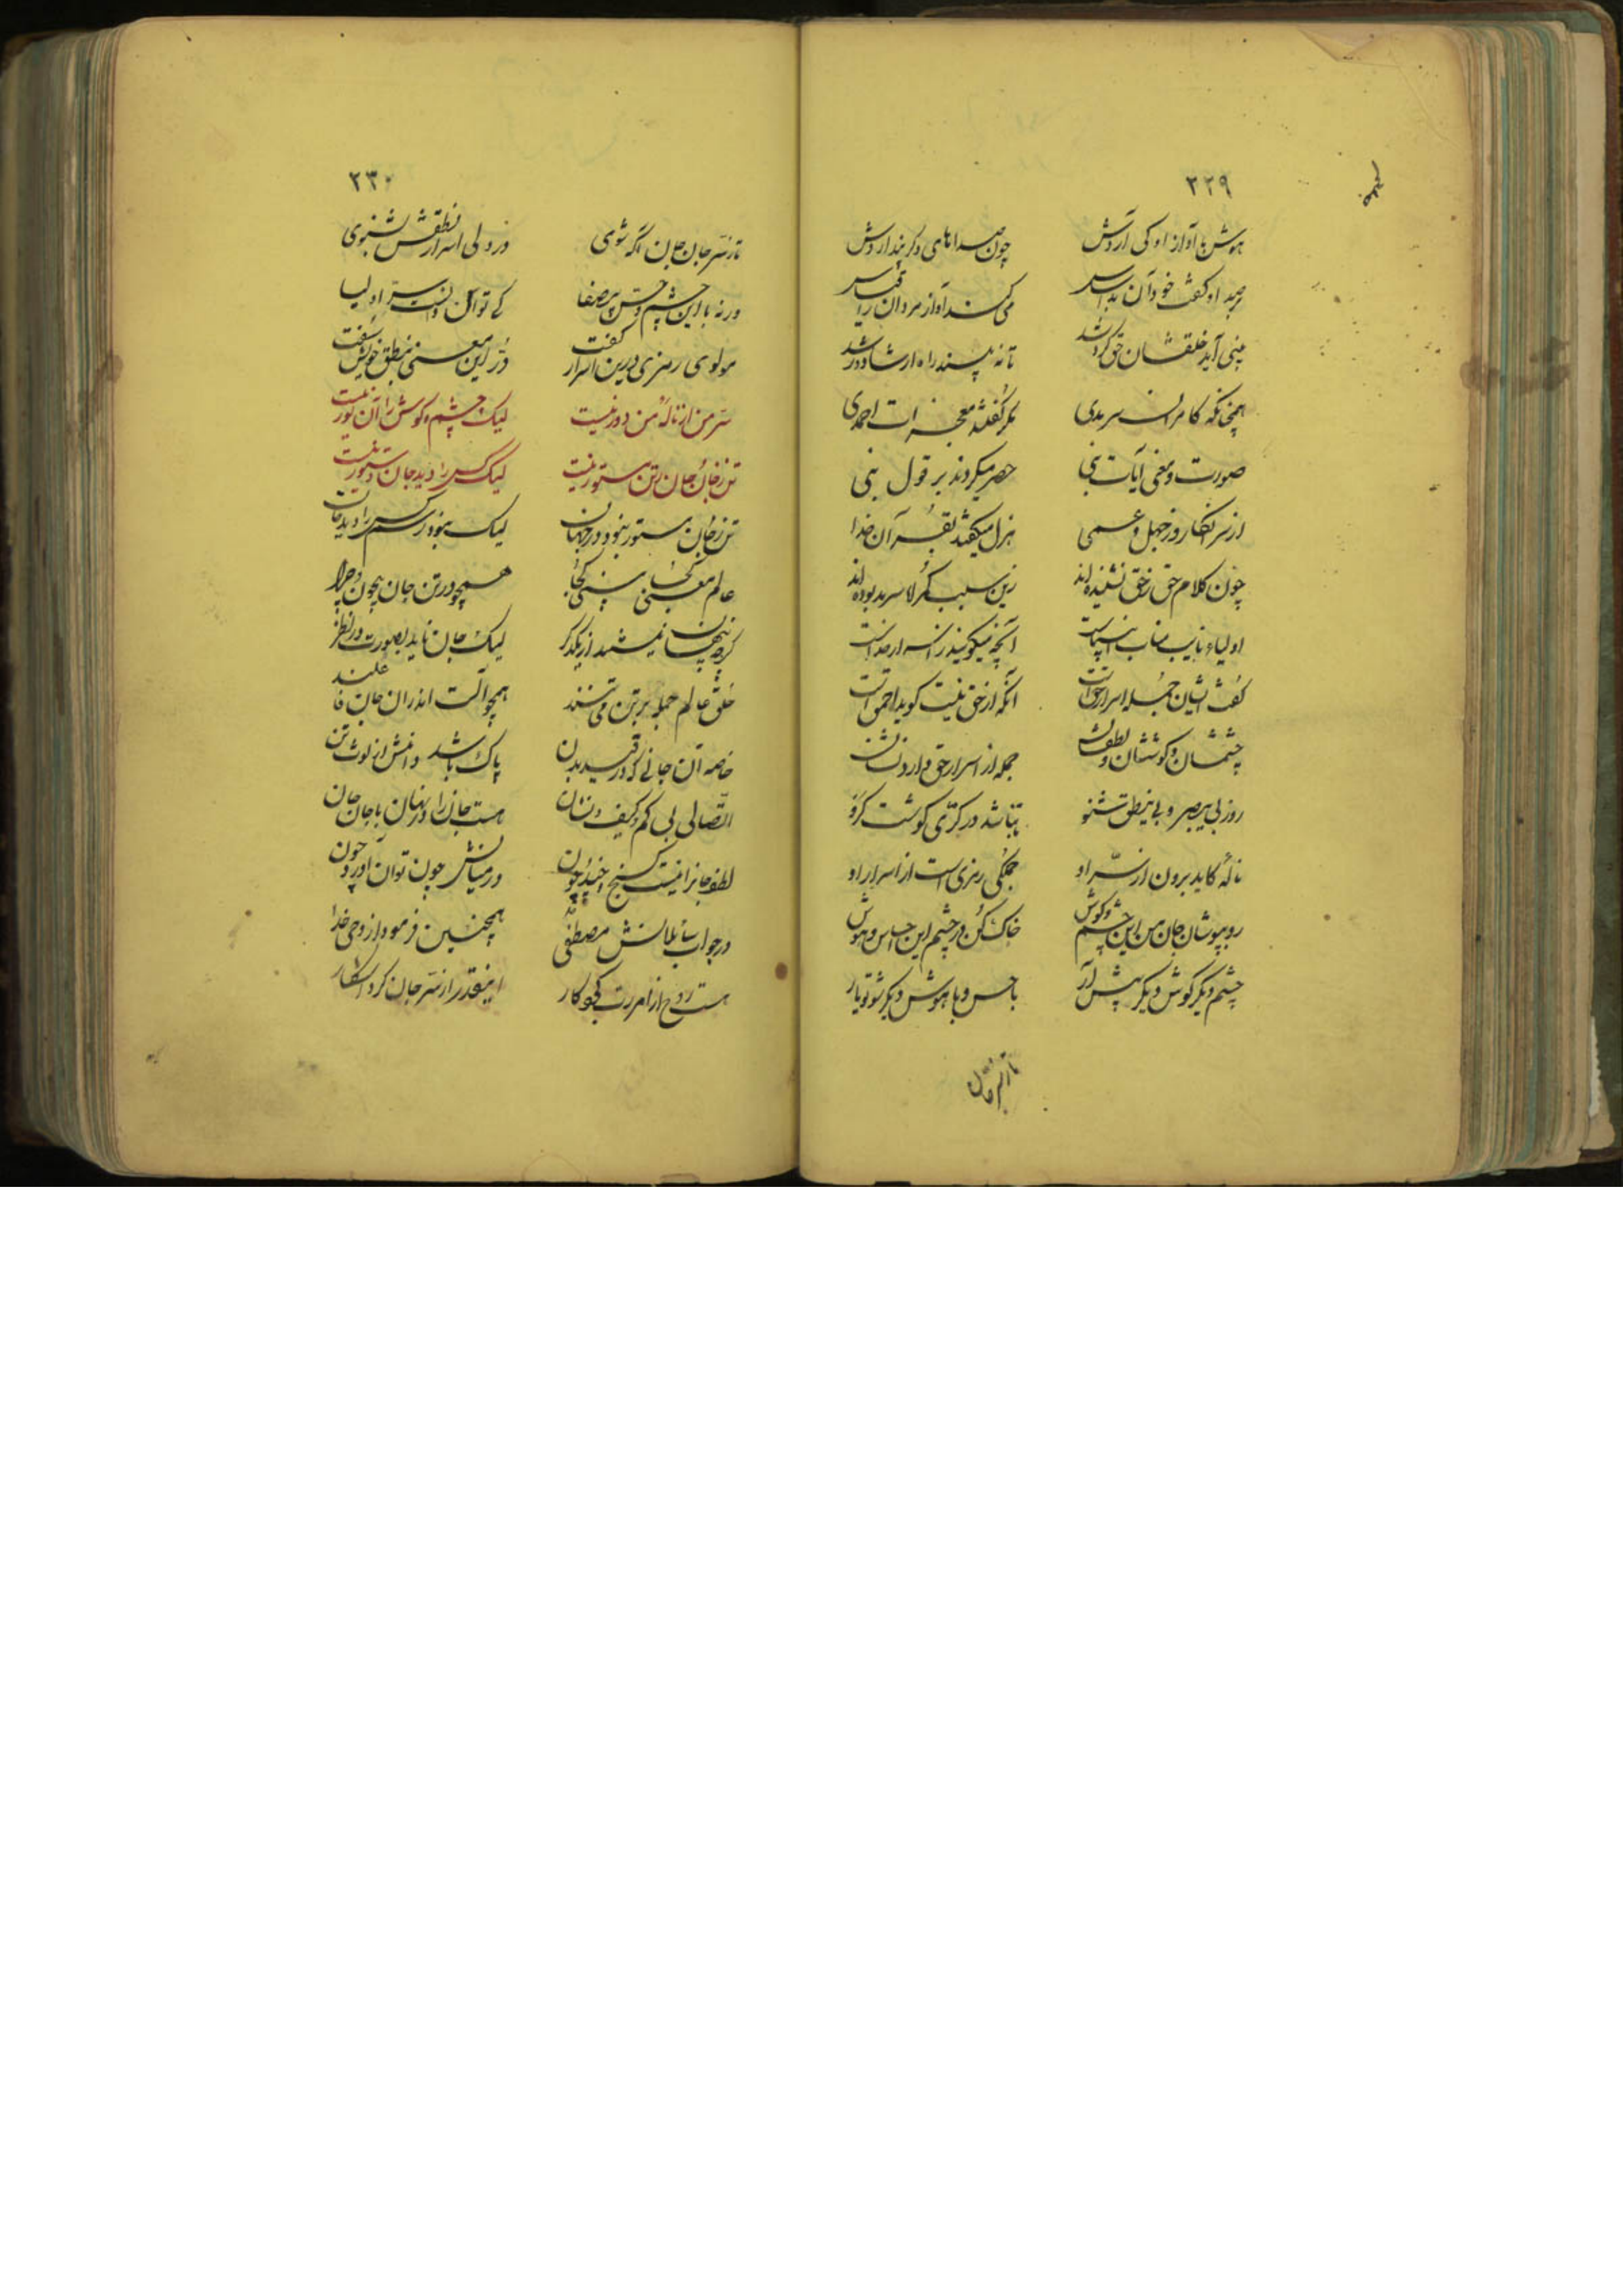 ۲۲۹
هوش با آواز او کی آردش چون صداهای دگر پنداردش
می‌کند آواز مردان را قیاس
بینی آید خلقشان حق کرد شد تا نه بیند راه ارشاد و رشد
همچنانکه کافران سرمدی مکر گفته معجزات احمدی
صورت و معنی آیات نبی حصر میکردند بر قول نبی
از سر انکار و ز جهل و عمی هزل میگفتند بقرآن خدا
چون کلام حق ز حق نشنیده‌اند زین سبب گمراه سرمد بوده‌اند
اولیاء نایب مناب انبیاست آنچه میگویند از اسرار خداست
گفت ایشان جمله اسرار حق است آنکه از حق نیست گوید احمق است
چشمشان و گوششان و لطفشان جمله از اسرار حق دارد نشان
روز بی یبصر و بی ینطق شنو تا نباشد در کری گوشت گرو
نالهٔ کاید برون از سر او جملگی رمزی است از اسرار او
رو بپوشان جان من این چشم و گوش خاک کن در چشم این حساس و هوش
چشم دیگر گوش دیگر پیش آر با حس و با هوش دیگر شو تو یار
تا ز سر جان
۲۳۰
تا ز سر جان جان آگه شوی وز ولی اسرار نطقش بشنوی
ورنه با این چشم و حس بی‌صفا کی توان دانست سر اولیا
مولوی رمزی درین اسرار گفت در این معنی بنطق خویش سفت
سر من از نالهٔ من دور نیست لیک چشم و گوش را آن نور نیست
تن ز جان و جان ز تن مستور نیست لیک کس را دید جان دستور نیست
تن ز جان مستور نبود در جهان لیک نبود رسم کس را دید جان
عالم معنی همچو در تن جان بیچون و چرا
گرچه پنهان نیستند از یکدگر لیک جان ناید بصورت در نظر
خلق عالم جمله بر تن می‌تنند همچو آلت اندران جان غافلند
خاصه آن جانی که در قید بدن پاک باشد دامنش از لوث تن
اتصالی بی کم و کیف و نشان هست جان را در نهان با جان جان
لفظ جانرا نیست گنج چند و چون در میانش چون توان آورد چون
در جواب سائلانش مصطفی همچنین فرمود از وحی خدا
هست روح از امر رب کردگار اینقدر از سر جان کرد آشکار